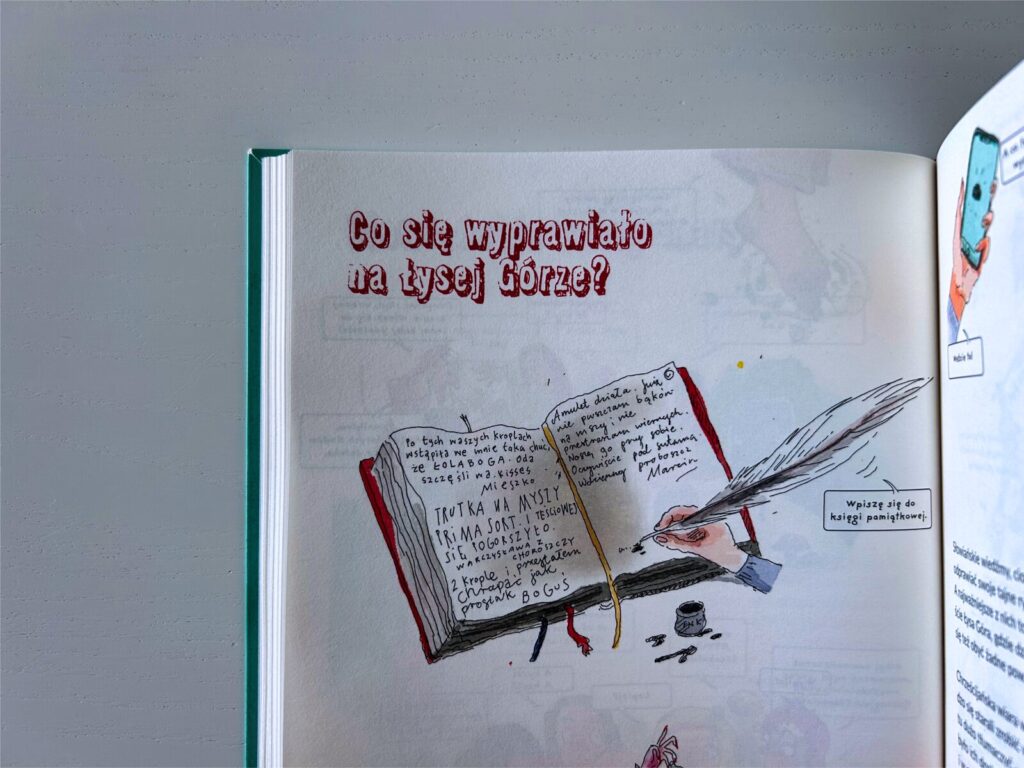 Co się wyprawiało
na Łysej Górze?
Po tych waszych kroplach,
wstąpiła we mnie taka chuć,
że ŁOLABOGA. Oda
szczęśliwa. Kisses
Mieszko
TRUTKA NA MYSZY
PRIMA SORT. I TEŚCIOWEJ
SIĘ POGORSZYŁO.
WARCZYSŁAWA Z
CHOROSZCZY
2 krople i przestałem
chrapać jak
prosiak BOGUŚ
Amulet działa. Już
nie puszczam bąków
na mszy i nie
przestraszam wiernych.
Noszę go przy sobie.
Oczywiście pod sutanną.
Wdzięczny proboszcz
Marcin
INK
Wpiszę się do
księgi pamiątkowej.
Słowiańskie wiedźmy,
odprawiać swoje tajne
A najważniejsze z nich
Łysa Góra, gdzie
się też obyć żadne
Chrześcijańska wiara
się starali, zrobić
to dużo tłumaczyć